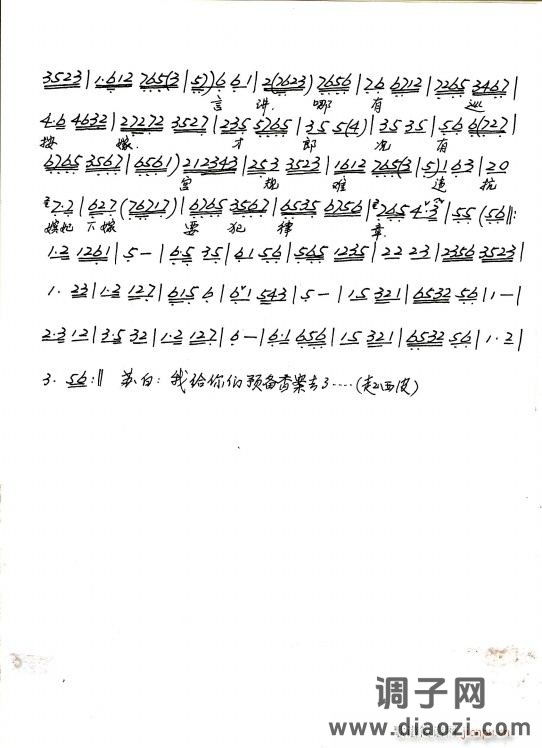 3523 | 1·612 765(3 | 5)) 6 6 1 | 2(7623) 7656 | 76 6712 | 7265 3467 |
言 讲. 哪 有 巡
4·6 4632 | 27272 3527 | 235 5765 | 35 5(4) | 35 35 | 56 6(727 |
按 嫁. 才 郎 况 有
6765 3567 | 6561) 212343 | 253 3523 | 1612 765(3 | 5) 1 63 | 20
宫 规 难 违 抗
7·2 | 627 (76717) | 6765 3567 | 6535 6756 | 765 4·3 | 55 (56 :||
嫔妃 下嫁 要 犯 律 章.
1·2 1261 | 5 — | 6·5 35 | 6·1 56 | 565 1235 | 22 23 | 2356 3523 |
1· 23 | 1·2 127 | 615 6 | 6·1 543 | 5 — | 15 321 | 6532 56 | 1 — |
2·3 12 | 3·5 32 | 1·2 127 | 6 — | 6·1 656 | 15 321 | 6532 56 | 1·2 |
3· 56 :|| 苏白: 我给你们预备香案去了····(起西皮)
调子网
www.diaozi.com